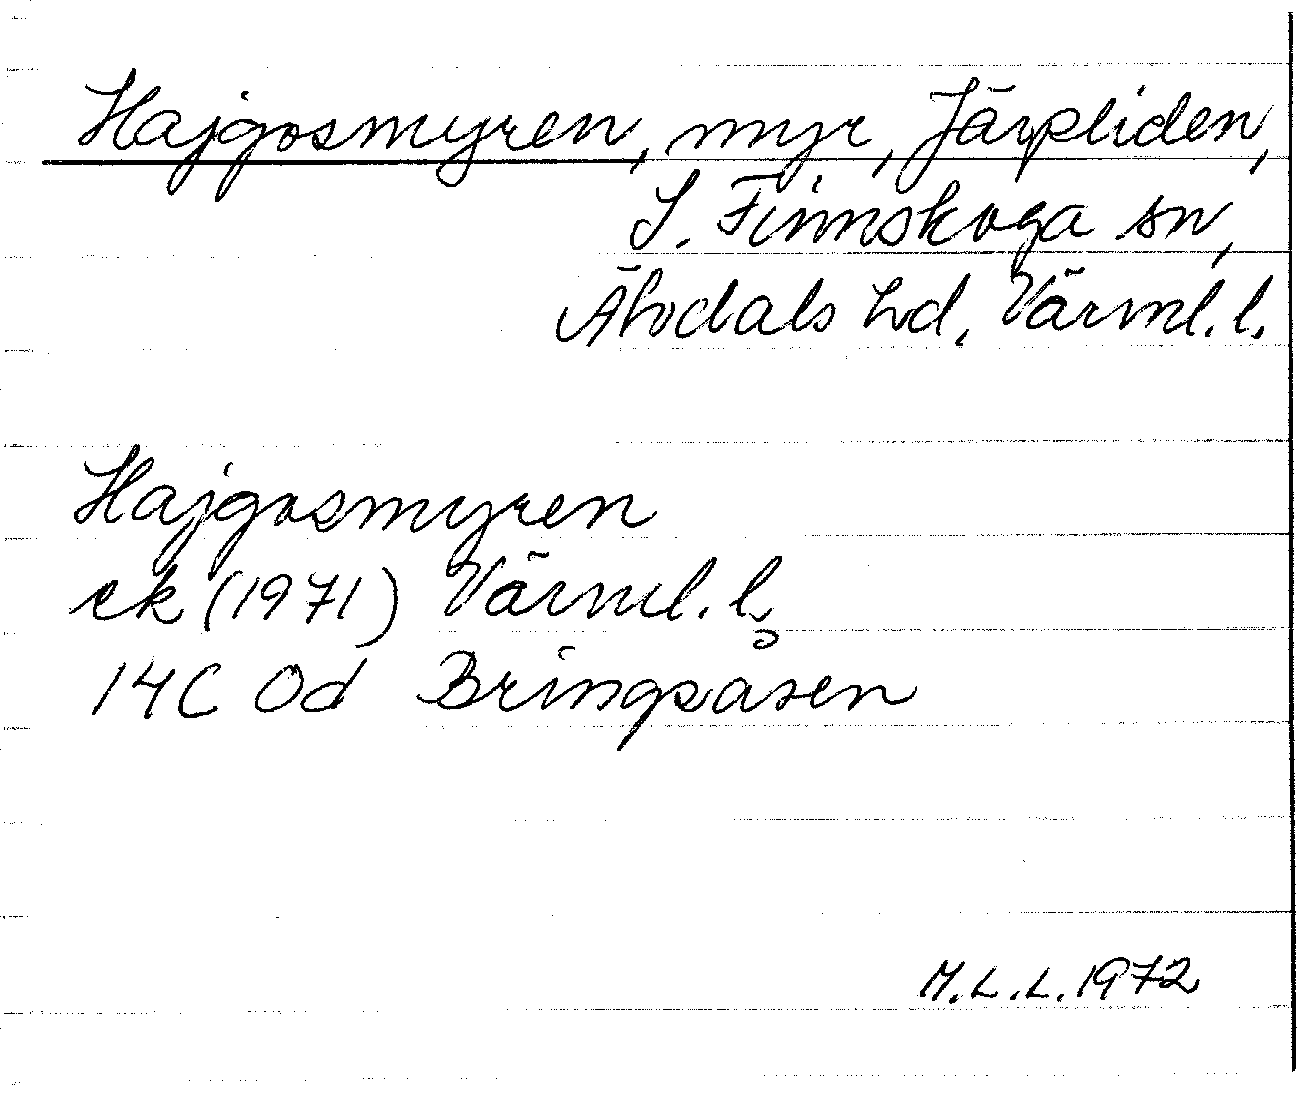 Hajgosmyren, myr, Järpliden,
S. Finnskoga sn,
Älvdals hd, Värml. l.
Hajgosmyren
ek (1971) Värml. l.
14C 0d Bringsåsen
M.L.L. 1972